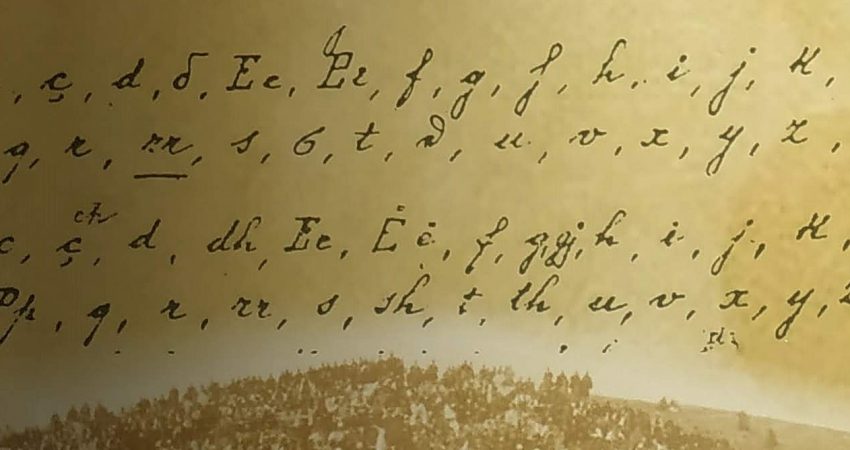 , ç, d, δ, E e, f, g, h, i, j, K,
q, r, rr, s, б, t, u, v, x, y, z,
ch
c, ç, d, dh, E e, Ë ë, f, g, gj, h, i, j, K,
p, q, r, rr, s, sh, t, th, u, v, x, y, z